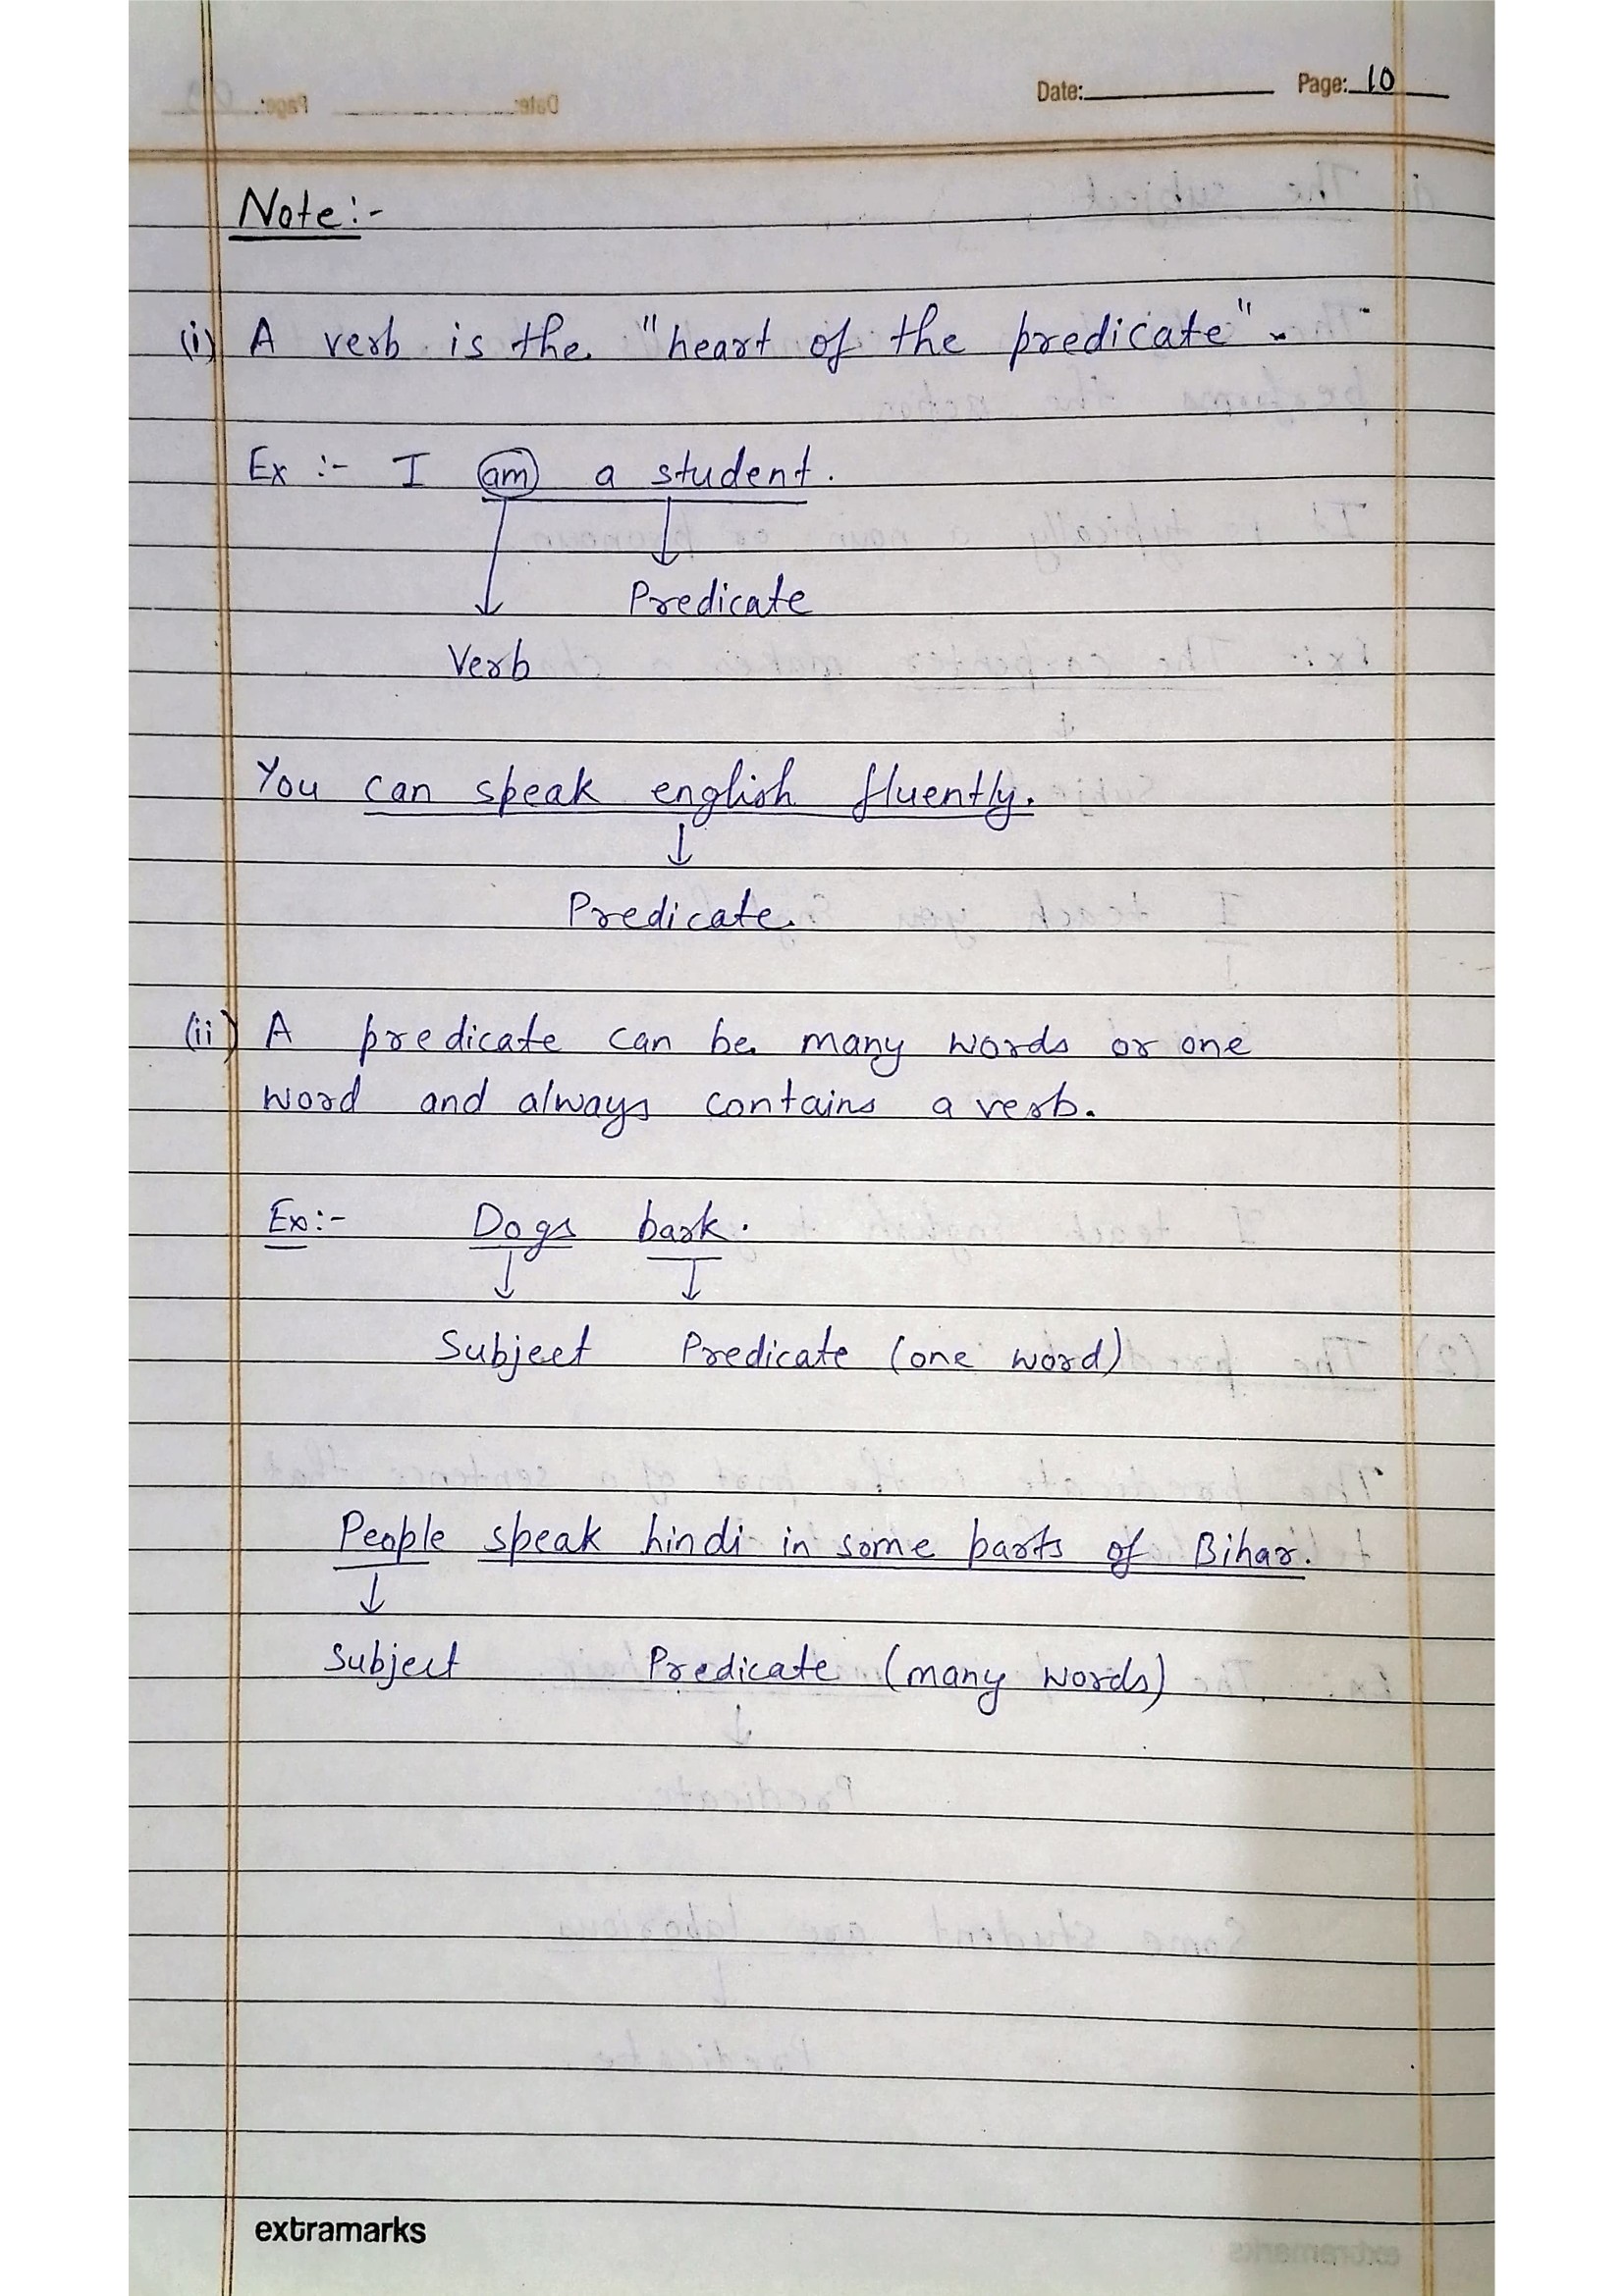 Date: Page: 10
Note:-
(i) A verb is the "heart of the predicate".
Ex :- I am a student.
Predicate
Verb
You can speak english fluently.
Predicate.
(ii) A predicate can be many words or one
word and always contains a verb.
Ex:- Dogs bark.
Subject Predicate (one word)
People speak hindi in some parts of Bihar.
Subject Predicate (many words)
extramarks